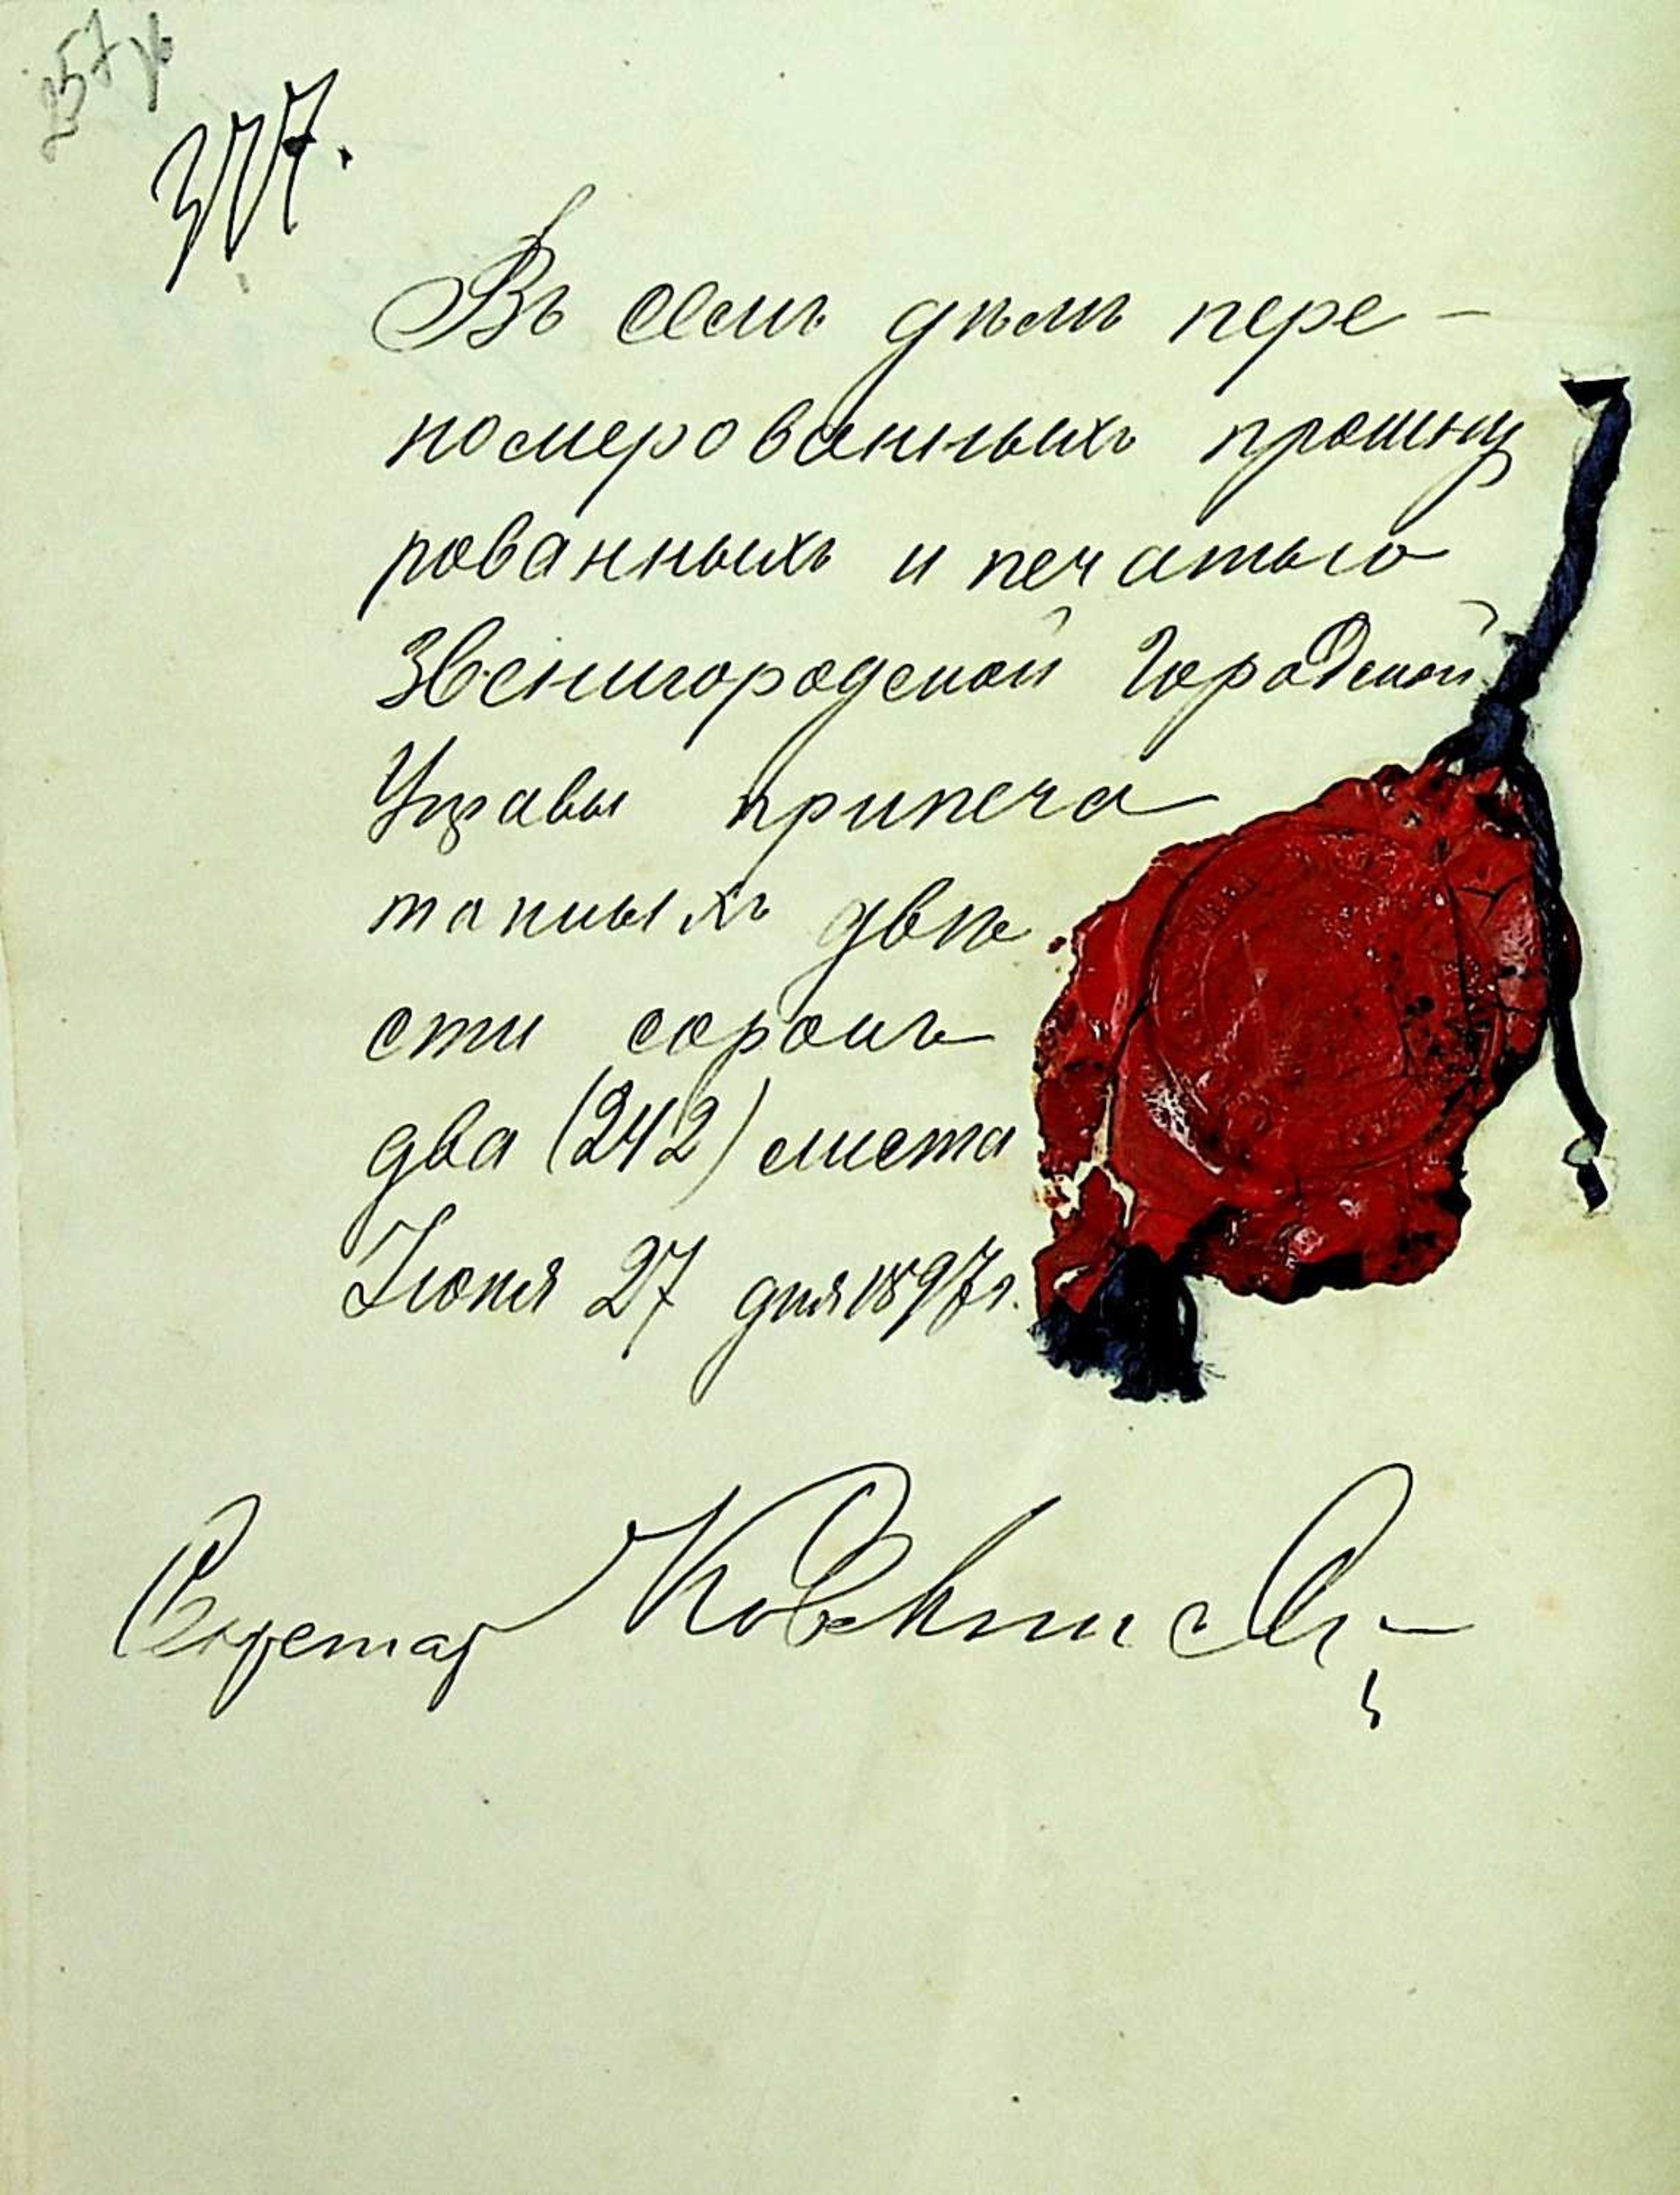 257
377.
Въ семъ дѣлѣ пере-
номерованныхъ прошну
рованныхъ и печатью
Звенигородской Городской
Управы припеча
танныхъ двѣ
сти сорокъ
два (242) листа
Іюня 27 дня 1897 г.
Секретарь